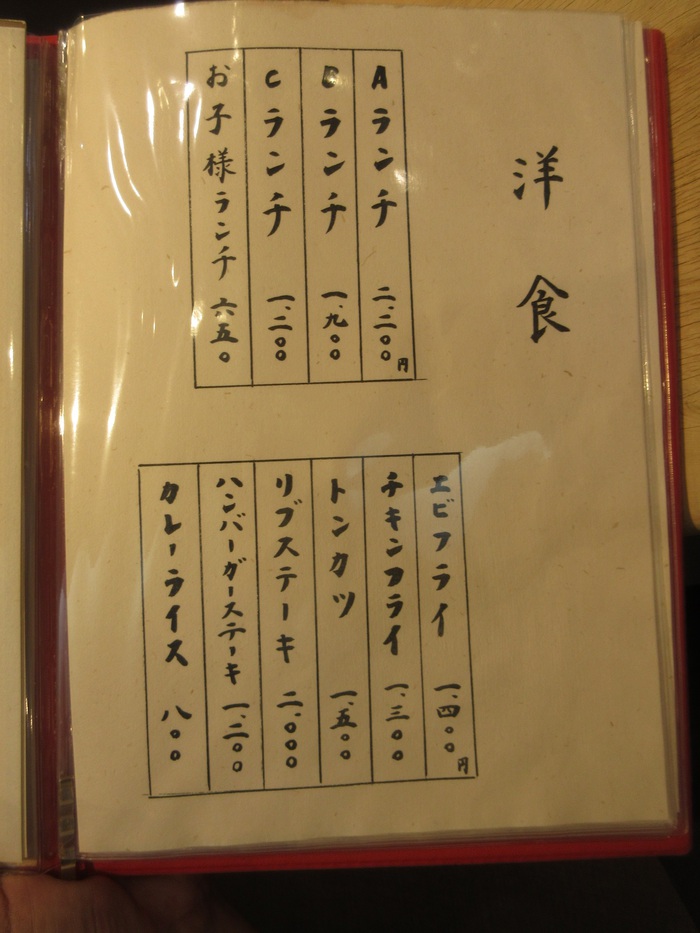 洋食
Aランチ 二、二〇〇円
Bランチ 一、九〇〇
Cランチ 一、二〇〇
お子様ランチ 六五〇
エビフライ 一、四〇〇円
チキンフライ 一、三〇〇
トンカツ 一、五〇〇
リブステーキ 二、〇〇〇
ハンバーガーステーキ 一、二〇〇
カレーライス 八〇〇